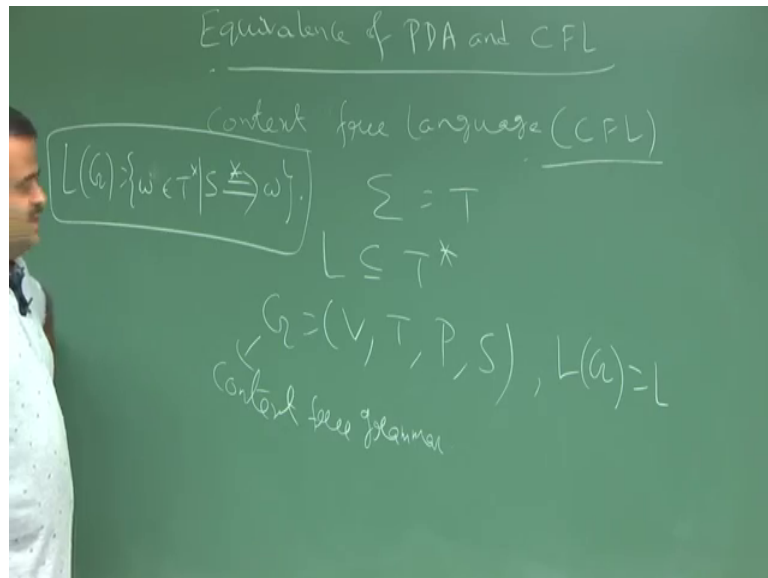 Equivalence of PDA and CFL
Context free language (CFL)
L(G)={w ∈ T* | S ⇒* w}.
Σ = T
L ⊆ T*
G = (V, T, P, S), L(G) = L
Context free grammar